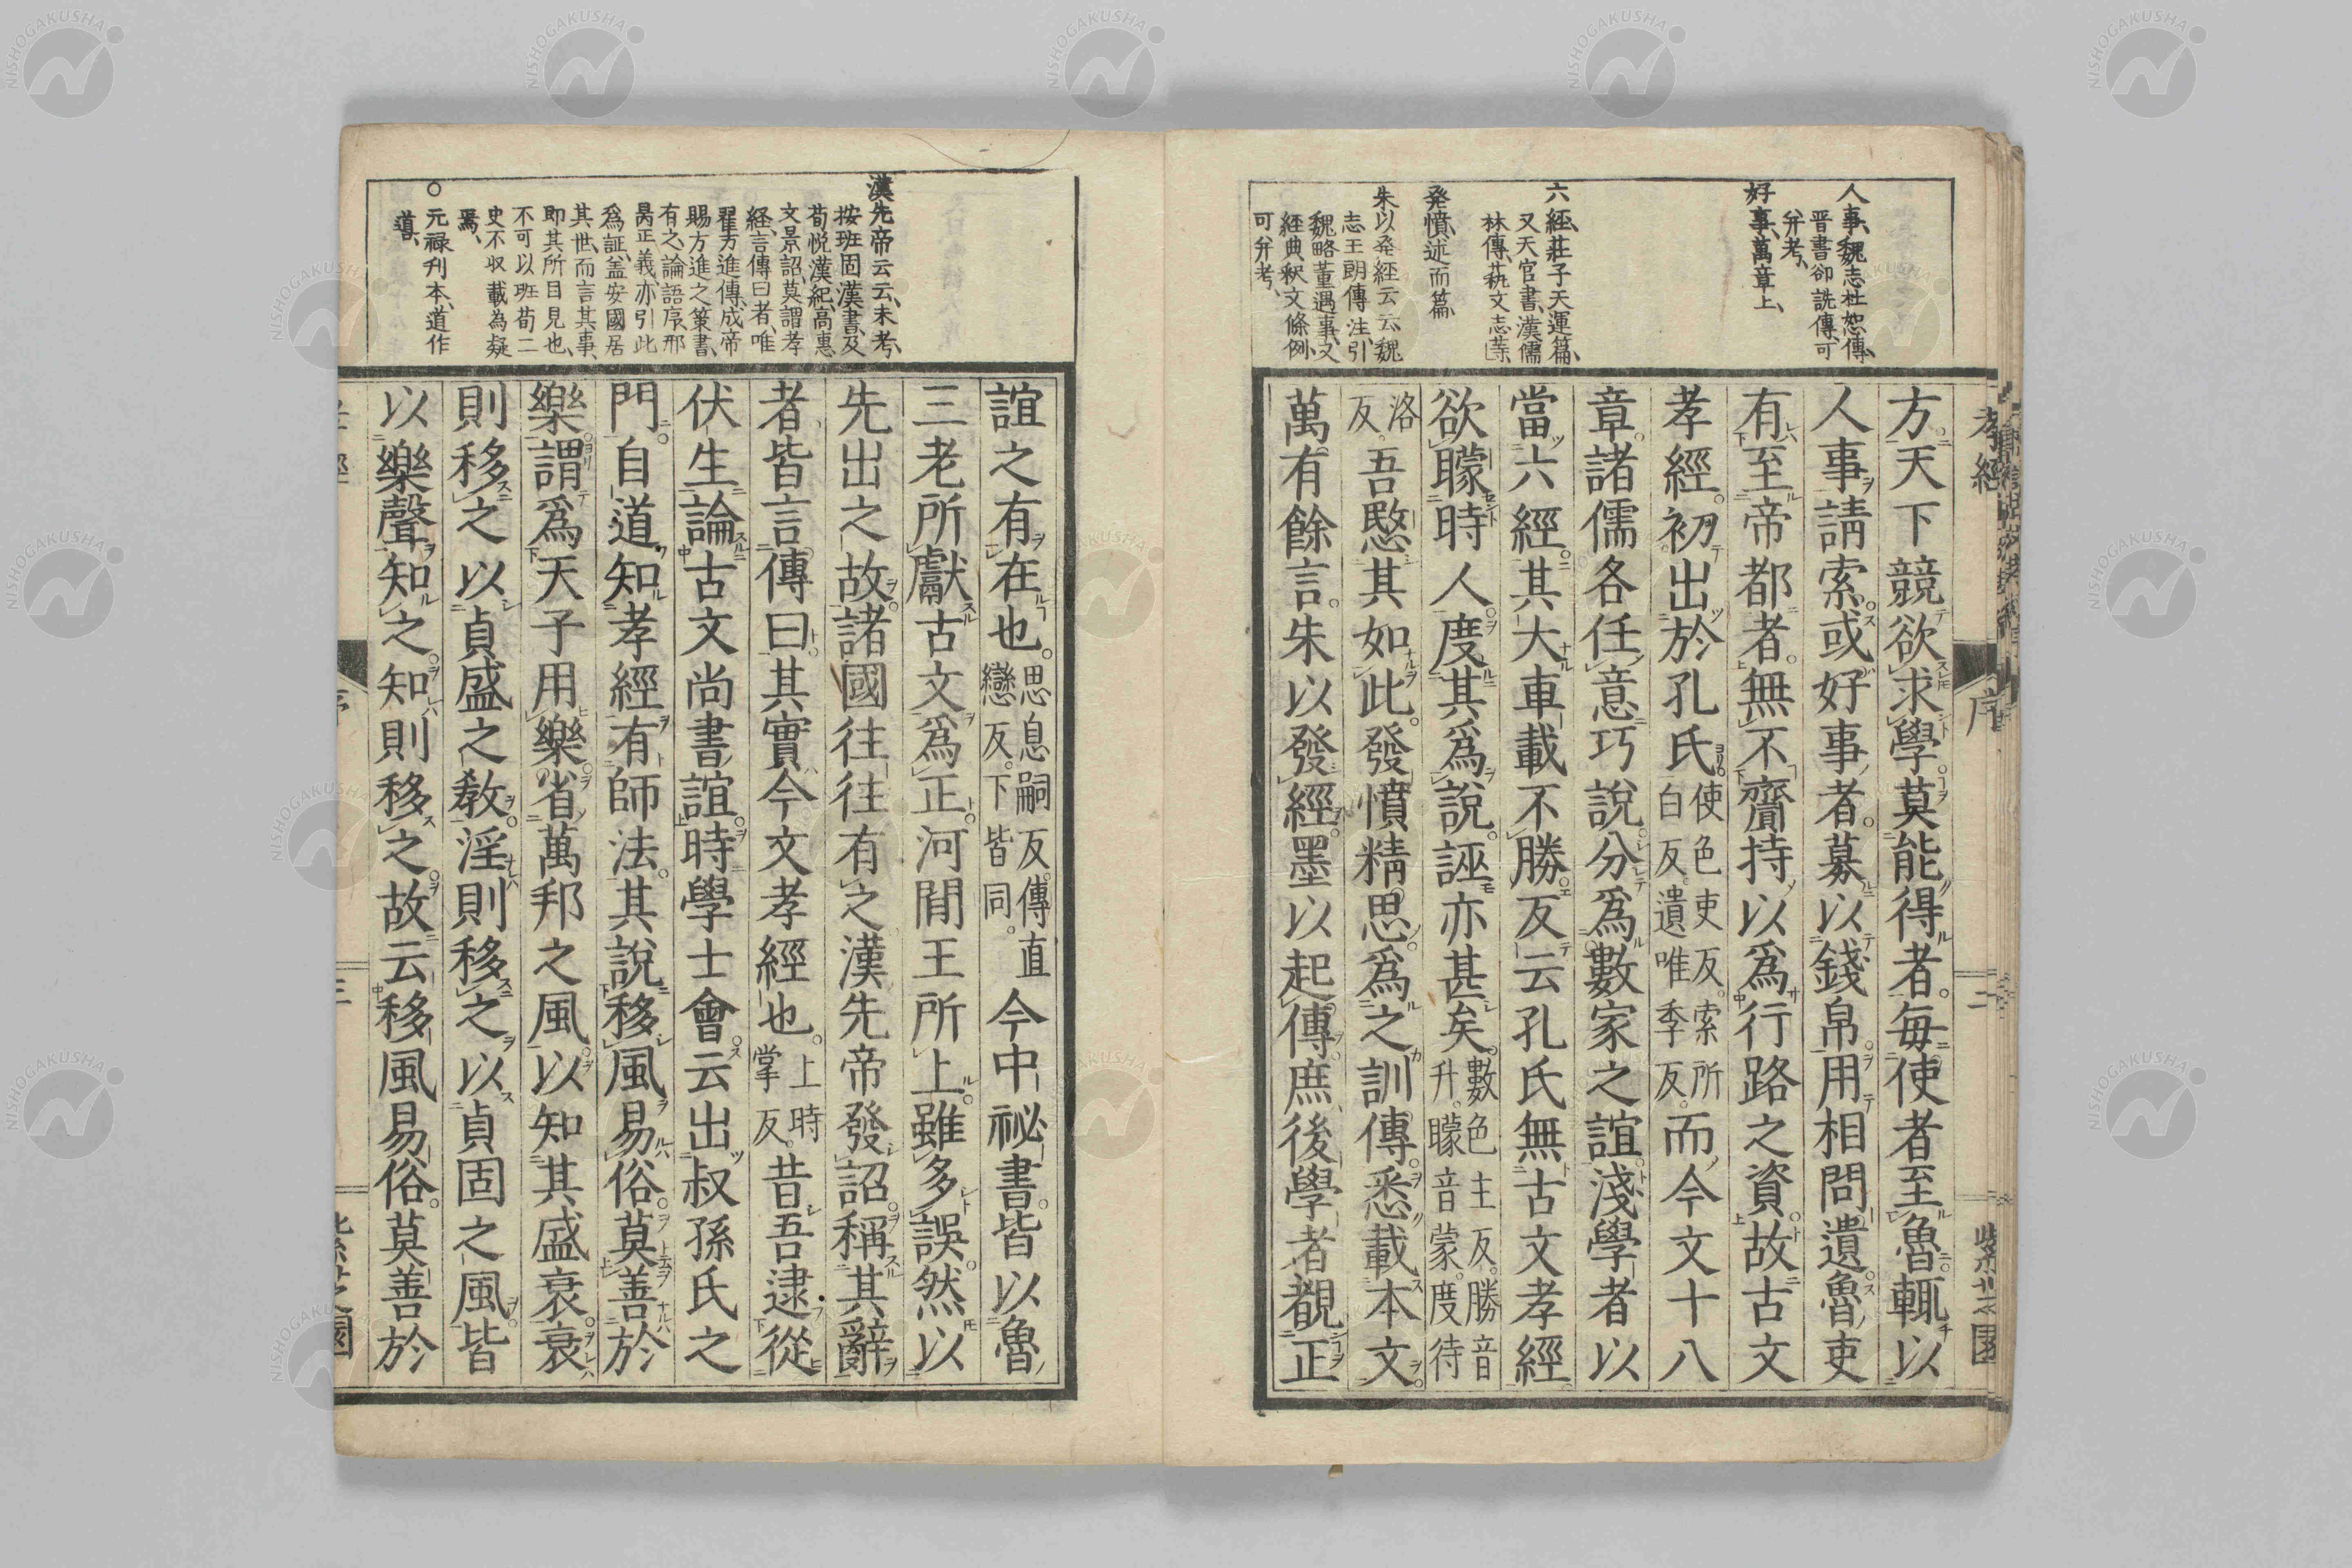 人事、魏志杜恕傳、
晋書郤詵傳、可
弁考、
好事、萬章上、
六經、莊子天運篇、
又天官書、漢儒
林傳、萟文志等、
発憤、述而篇、
朱以発経云云、魏
志王朗傳注、引
魏略董遇事、又
經典釈文條例、
可弁考、
孝經
序
二
紫芝園
方天下競欲求學莫能得者每使者至魯輒以
人事請索或好事者募以錢帛用相問遺魯吏
有至帝都者無不齎持以爲行路之資故古文
孝經初出於孔氏使色吏反索所白反遺唯季反而今文十八
章諸儒各任意巧說分爲數家之誼淺學者以
當六經其大車載不勝反云孔氏無古文孝經
欲矇時人度其爲說誣亦甚矣數色主反勝音升矇音蒙度待
洛反吾愍其如此發憤精思爲之訓傳悉載本文
萬有餘言朱以發經墨以起傳庶後學者覩正
漢先帝云云、未考、
按班固漢書、及
荀悦漢紀、高惠
文景詔、莫謂孝
経、言傳曰者、唯
翟方進傳、成帝
賜方進之策書、
有之、論語序、邢
昺正義亦引此
為証、盖安國居
其世、而言其事、
即其所目見也、
不可以班荀二
史不収載為疑
焉、
○元禄刋本、道作
導、
誼之有在也思息嗣反傳直戀反下皆同今中祕書皆以魯
三老所獻古文爲正河閒王所上雖多誤然以
先出之故諸國往往有之漢先帝發詔稱其辭
者皆言傳曰其實今文孝經也上時掌反昔吾逮從
伏生論古文尚書誼時學士會云出叔孫氏之
門自道知孝經有師法其說移風易俗莫善於
樂謂爲天子用樂省萬邦之風以知其盛衰衰
則移之以貞盛之敎淫則移之以貞固之風皆
以樂聲知之知則移之故云移風易俗莫善於